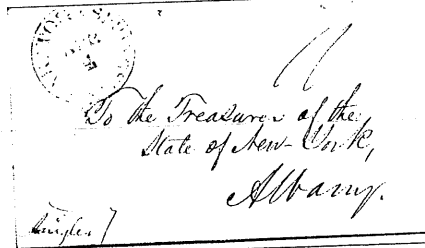 To the Treasurer of the
State of New-York,
Albany.